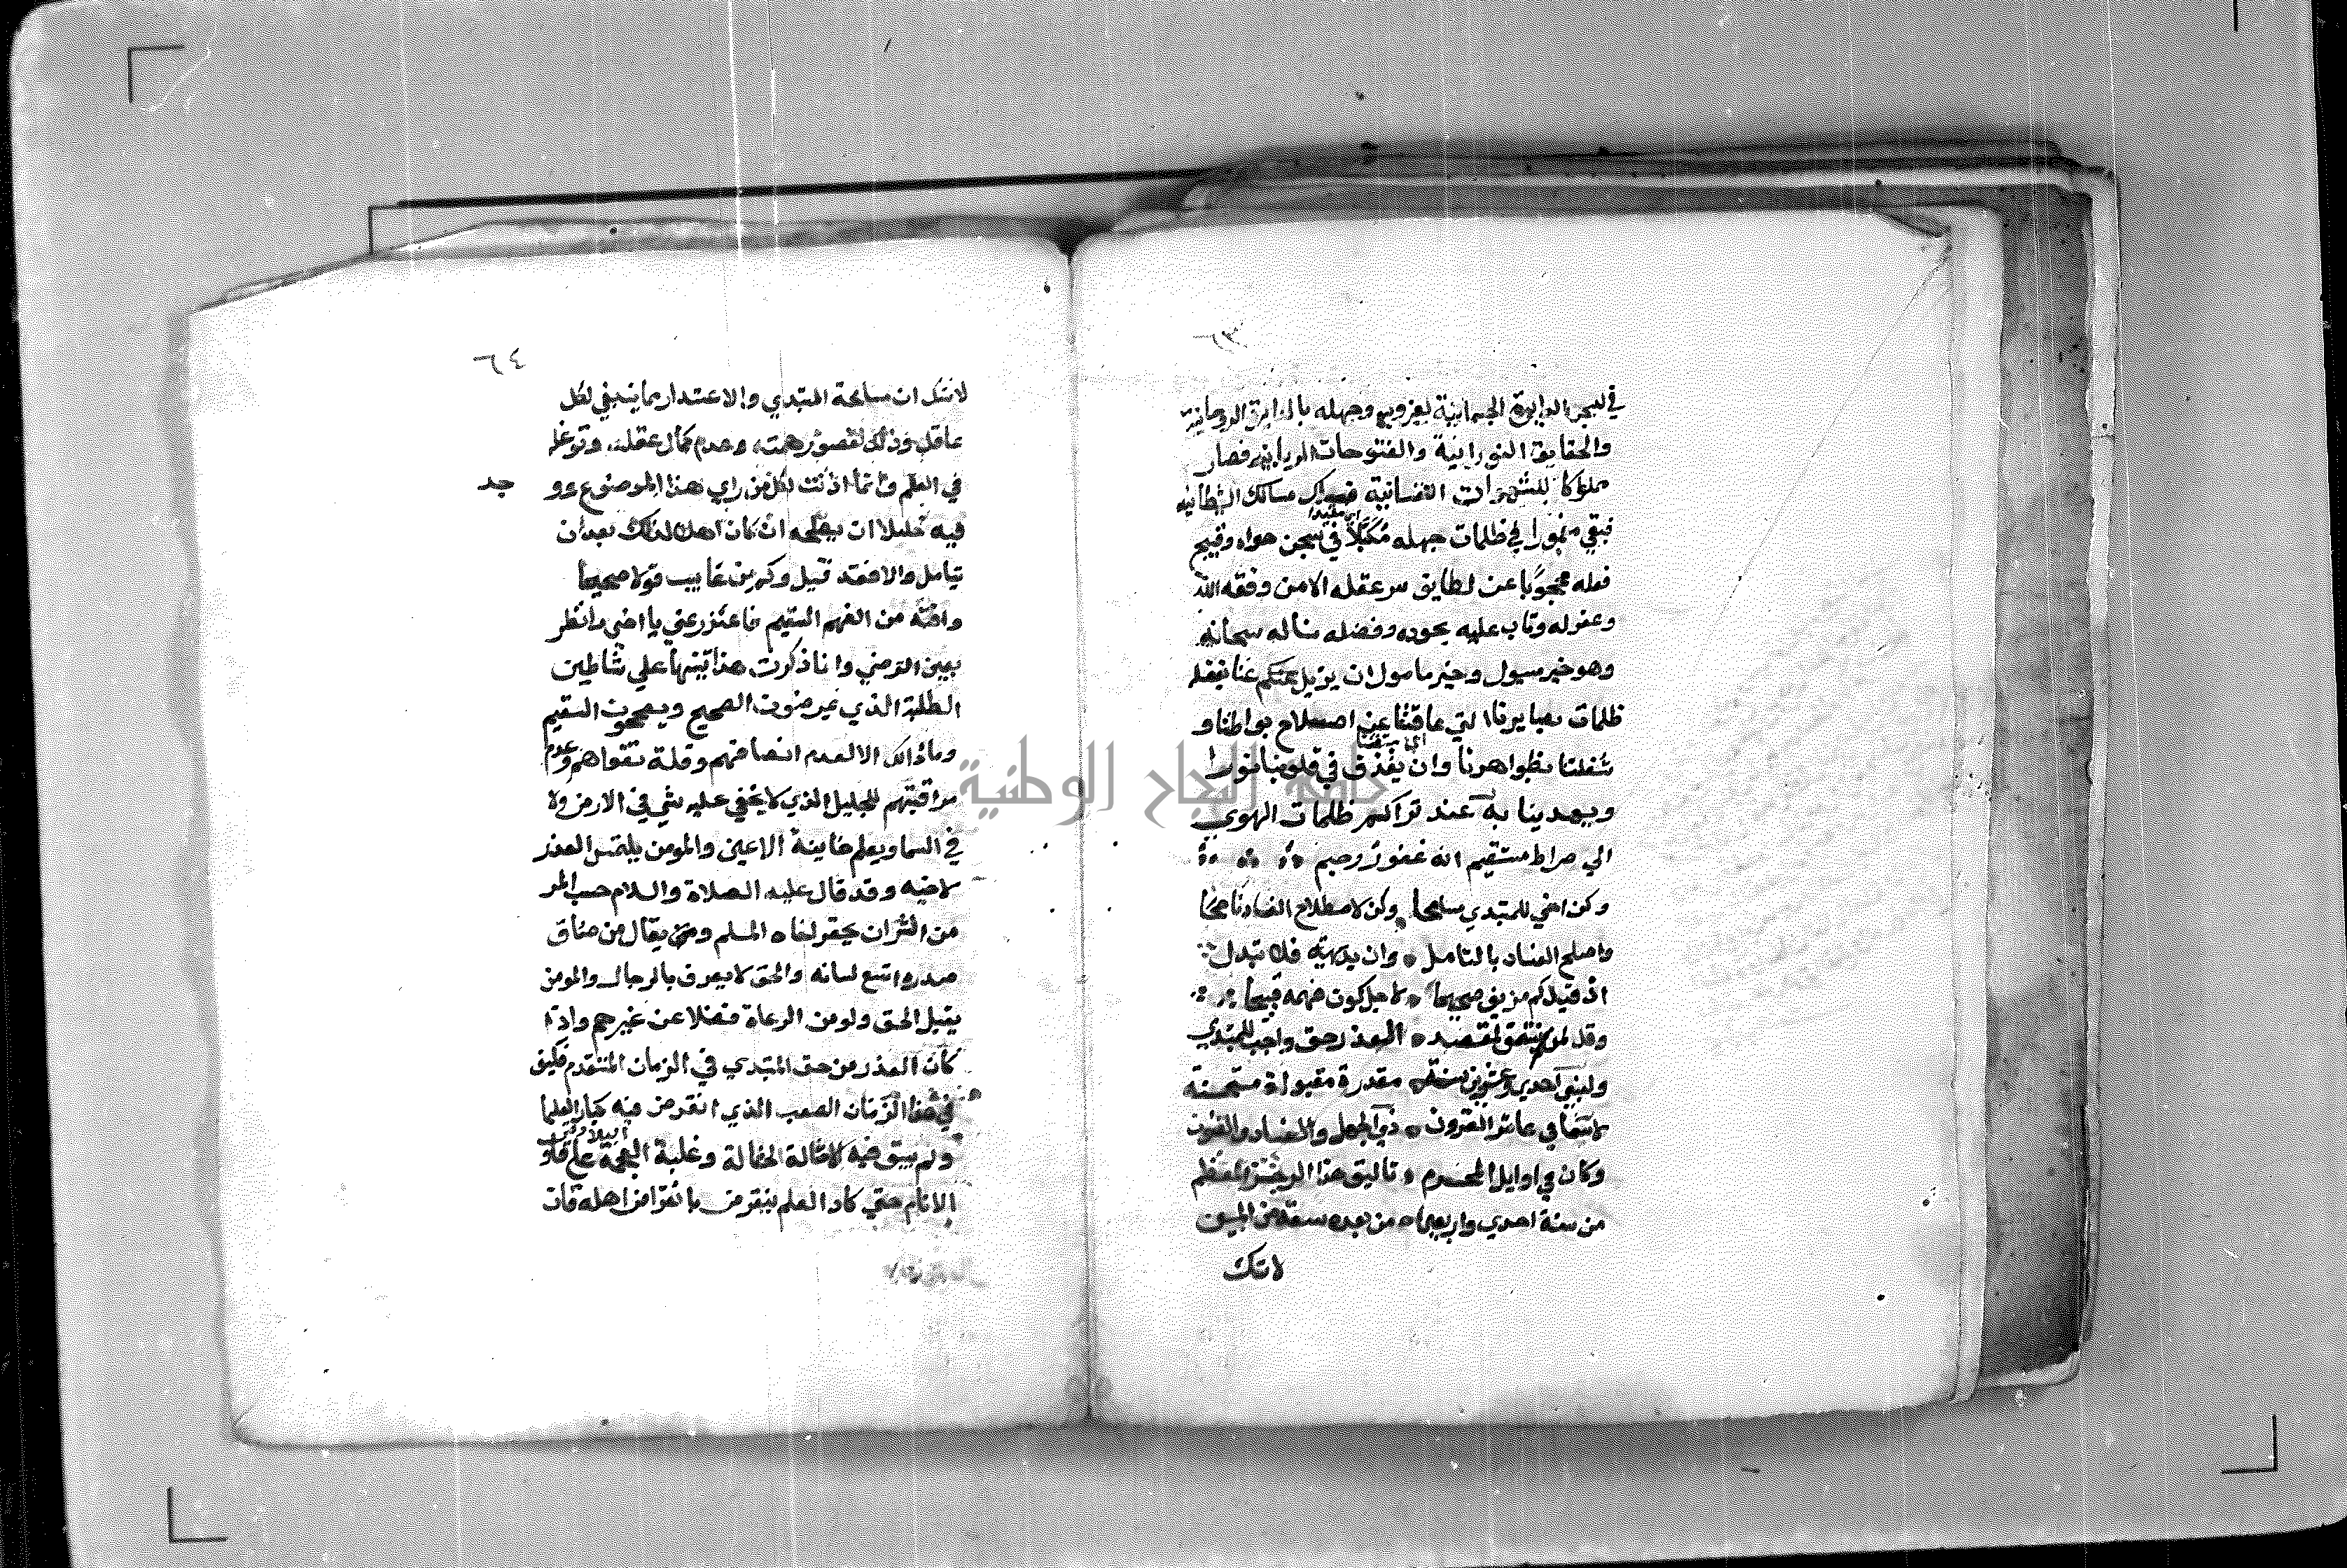 ٦٣
في لبحر الدايرة الجسمانية بعزوبه وجهله بالدايرة الروحانية
والحقايق النورانية والفتوحات الربانيه فصار
مملوكا للشهوات النفسانية مسالك الشيطانيه
فبقي مغمورا في ظلمات جهله مُكَبَّلاً في سجن هواه وقبيح
اي مقيدا
فعله محجوبا عن لطايف سر عقله الا من وفقه الله
وغفر له وتاب عليه بجوده وفضله سبحانه
وهو خير مسيول وخير مامول ان يزيل عنكم عنا بفضله
ظلمات بصايرنا التي عاقتنا عن اصلاح بواطنا و
شغلتنا بظواهرنا وان يقذف في قلوبنا نورا
ويهدينا به عند تراكم ظلمات الهوي
الي صراط مستقيم انه غفور رحيم
وكن اخي للمبتدي مسامحا وكن لاصلاح الفساد ناصحا
واصلح الفساد بالتامل وان بديهة فلا تبدل
اذ قيل كم مزيف صحيحا لاجل كون فهمه قبيحا
وقل لمن لم ينتصف لمقصدي العذر حق واجب للمبتدي
ولبني احدي وعشرين سنة معذرة مقبولة مستحسنة
لاسيما في عاشر القرون ذي الجهل والفساد والفتون
وكان في اوايل المحرم تاليف هذا الرجز المنظم
من سنة احدي واربعين من بعده تسعة من الميين
لاتك
٦٤
لاشك ان مسامحة المبتدي والاعتذار مما ينبغي لكل
عاقل وذلك لقصور همته وعدم كمال عقله وتوغله
في العلم وانما اذنت لكل من راي هذا الموضوع وو جد
فيه خللا ان يصلحه ان كان اهلا لذلك بعد ان
يتامل والا فقد قيل وكم من عايب قولا صحيحا
وافته من الفهم السقيم فاعتذر عني يا اخي وانظر
بعين الرضي وانا ذكرت هذا تنبيها علي شاطين
الطلبة الذي يحرفون الصحيح ويصححون السقيم
وما ذالك الا لعدم انصافهم وقلة تقواهم وعدم
مراقبتهم للجليل الذي لا يخفي عليه شي في الارض ولا
في السما ويعلم خاينة الاعين والمومن يلتمس العذر
لاخيه وقد قال عليه الصلاة والسلام حسب المر
من الشر ان يحقر اخاه المسلم ومن يقال من ضاق
صدره اتسع لسانه والحق لا يعرف بالرجال والمومن
يقبل الحق ولو من الرعاة فضلا عن غيرهم واذا
كان العذر من حق المبتدي في الزمان المتقدم فكيف
في هذا الزمان الصعب الذي انقرض فيه كبار العلما
ولم يبق فيه الا حثالة الحثالة وغلبة العجمة علي
الانام حتي كاد العلم ينقرض بانقراض اهله فان
جامعة النجاح الوطنية